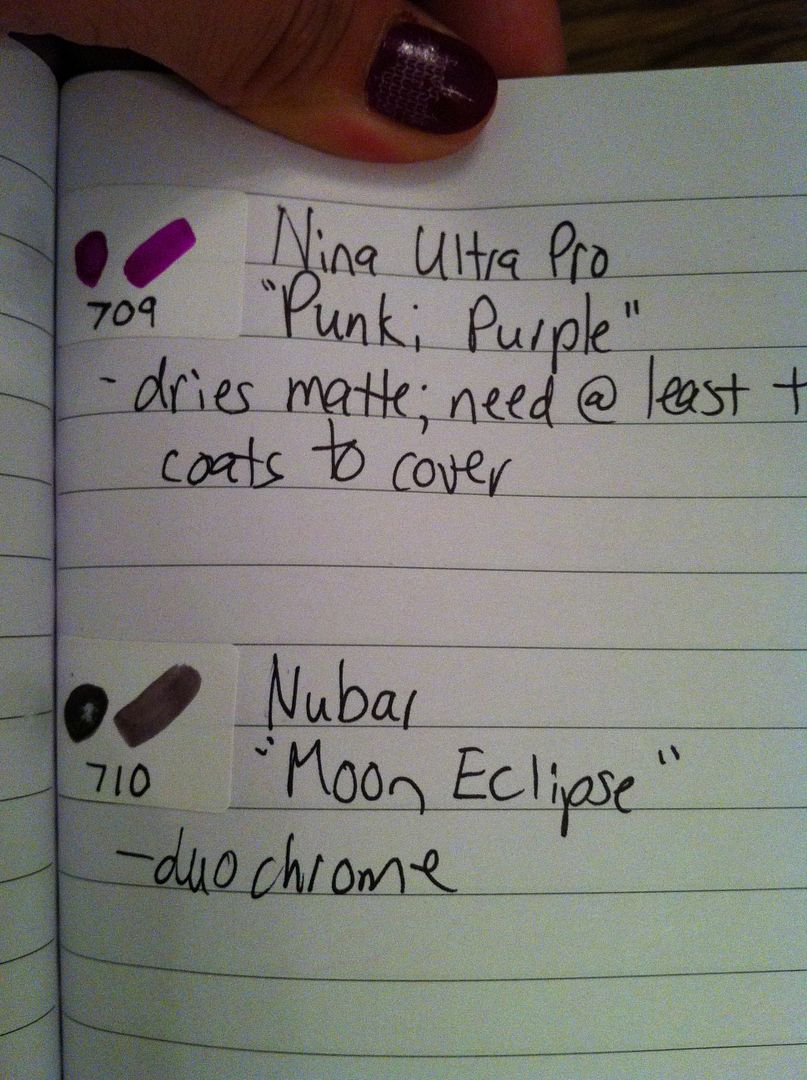 Nina Ultra Pro
709
"Punki Purple"
- dries matte; need @ least
coats to cover
Nubar
710
"Moon Eclipse"
- duochrome